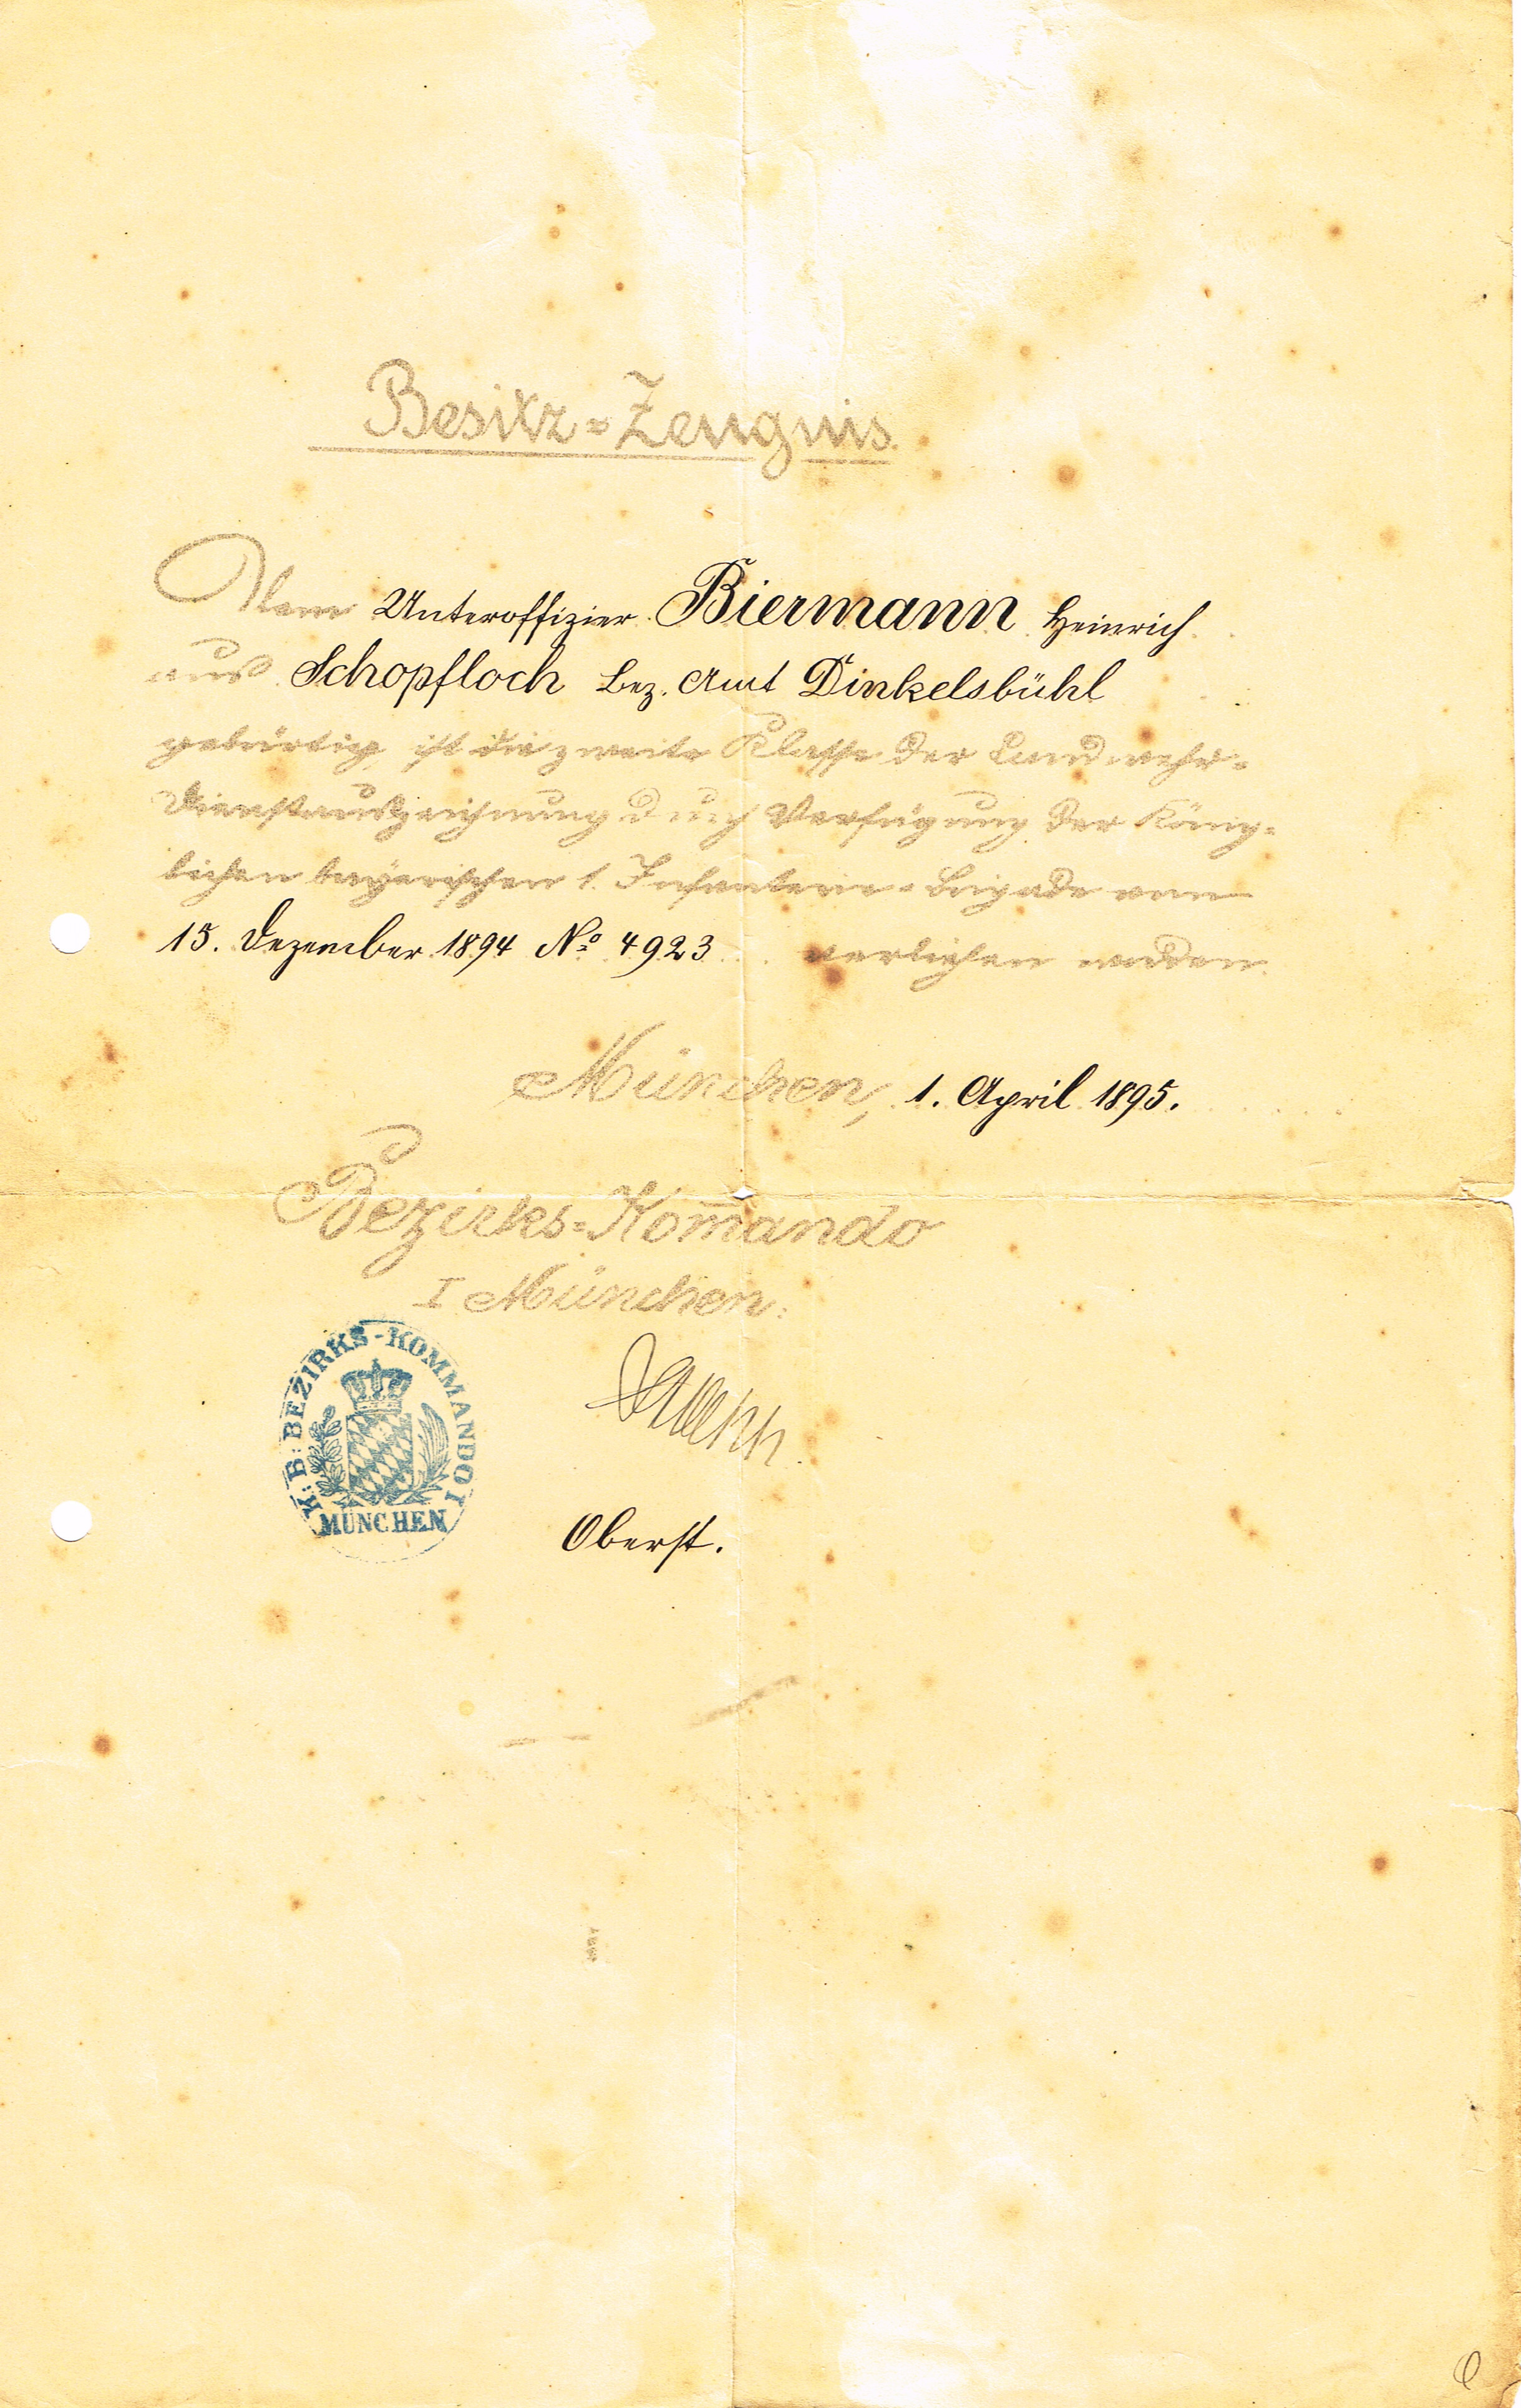 Besitz=Zeugnis.
Dem Unteroffizier Biermann Heinrich
aus Schopfloch Bez. Amt Dinkelsbühl
gebürtig ist die zweite Klasse der Landwehr=
Dienstauszeichnung durch Verfügung der König=
lichen bayerischen 1. Infanterie=Brigade vom
15. Dezember 1894 No 4923 verliehen worden.
München, 1. April 1895.
Bezirks=Kom̄ando
I München.
K: B: BEZIRKS-KOMMANDO I
MÜNCHEN
Oberst.